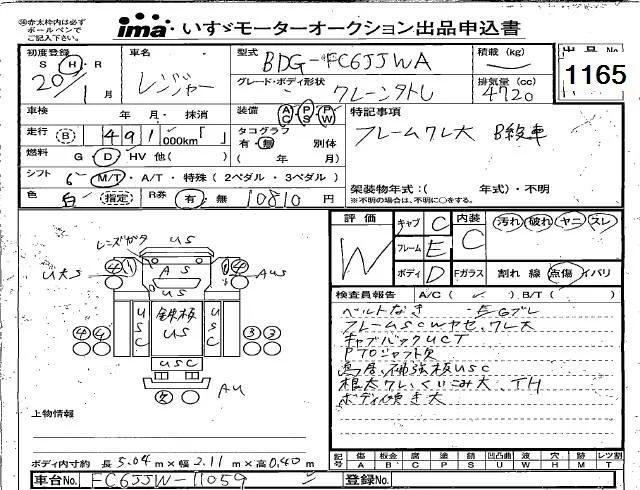 ※赤太枠内は必ず
ボールペンで
ご記入下さい。
ima いすゞモーターオークション出品申込書
初度登録 S H・R 20/1月
車名 レンジャー
型式 BDG-FC6JJWA
積載 (kg)
出品No 1165
グレード・ボディ形状 クレーンタトレ
排気量 (cc) 4720
車検 年 月・抹消
装備 AC PS PW
特記事項
フレームワレ大 B級車
走行 B 491 000km「 」
タコグラフ 有・無 別体
( 年 月)
燃料 G・D・HV 他( )
シフト 6 M/T・A/T・特殊(2ペダル・3ペダル)
色 白 (指定) R券 有・無 10810円
架装物年式:( 年式)・不明
※不明の場合は、不明に○をする。
評価 W
キャブ C
フレーム E
ボディ D
内装 C
汚れ・破れ・ヤニ・スレ
Fガラス 割れ 線 点傷 イバリ
検査員報告 A/C( ✓ ) B/T( )
ベルトなき ・EGブレ
フレームSCWヤセ、ワレ大
キャブバックUCT
PTOシャフト欠
鳥居、補強板USC
根太ワレ、くいこみ大、TH
ボディ傾き大
レンズガタ US
U大S 4 1 AS 1 4 AUS
US
4 4 USC 鉄板 US USC 3 3
USC
欠 AU
上物情報
ボディ内寸約 長5.04m×幅2.11m×高0.40m
記号 傷 板金 腐 塗 錆 凹凸曲 波 穴 跡 レツ割
A B C P S U W H M T
車台No. FC6JJW-11059
登録No.